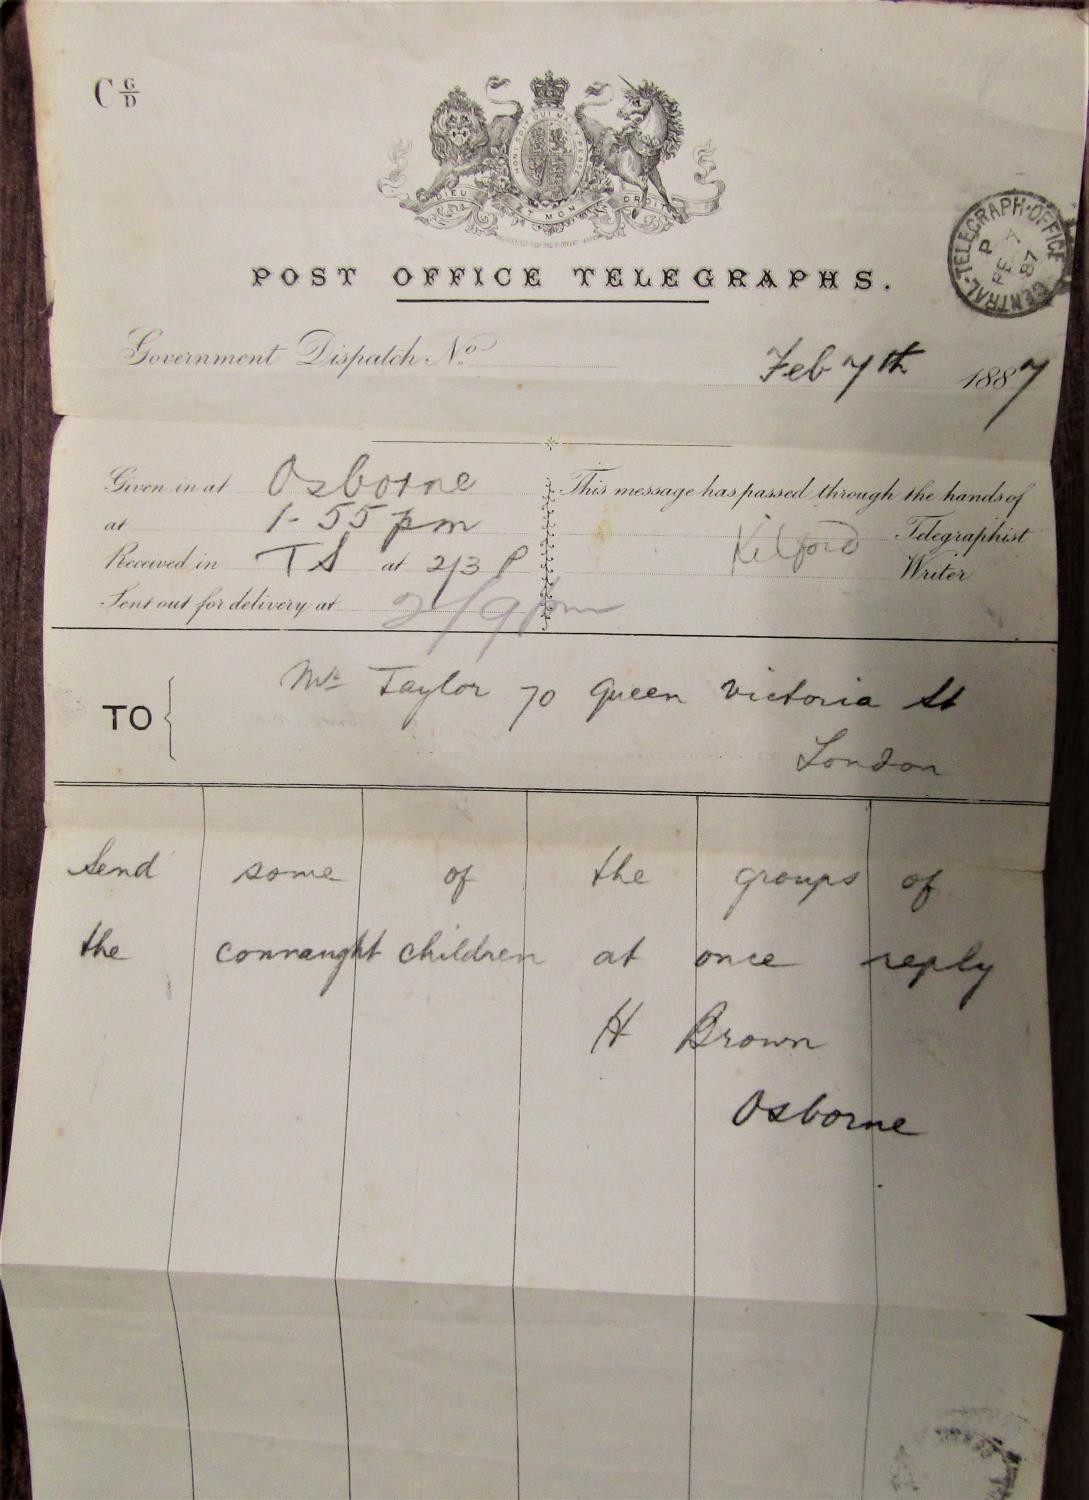 C G/D
HONI SOIT QUI MAL Y PENSE
DIEU ET MON DROIT
POST OFFICE TELEGRAPHS.
CENTRAL-TELEGRAPH-OFFICE
P
FE 7
87
Government Dispatch No.
Feb 7th 1887
Given in at Osborne
at 1-55 pm
Received in TS at 2/3 P
Sent out for delivery at 2/9 pm
This message has passed through the hands of
Kilford Telegraphist
Writer
TO
Mr Taylor 70 Queen Victoria St
London
Send some of the groups of
the connaught children at once reply
H Brown
Osborne